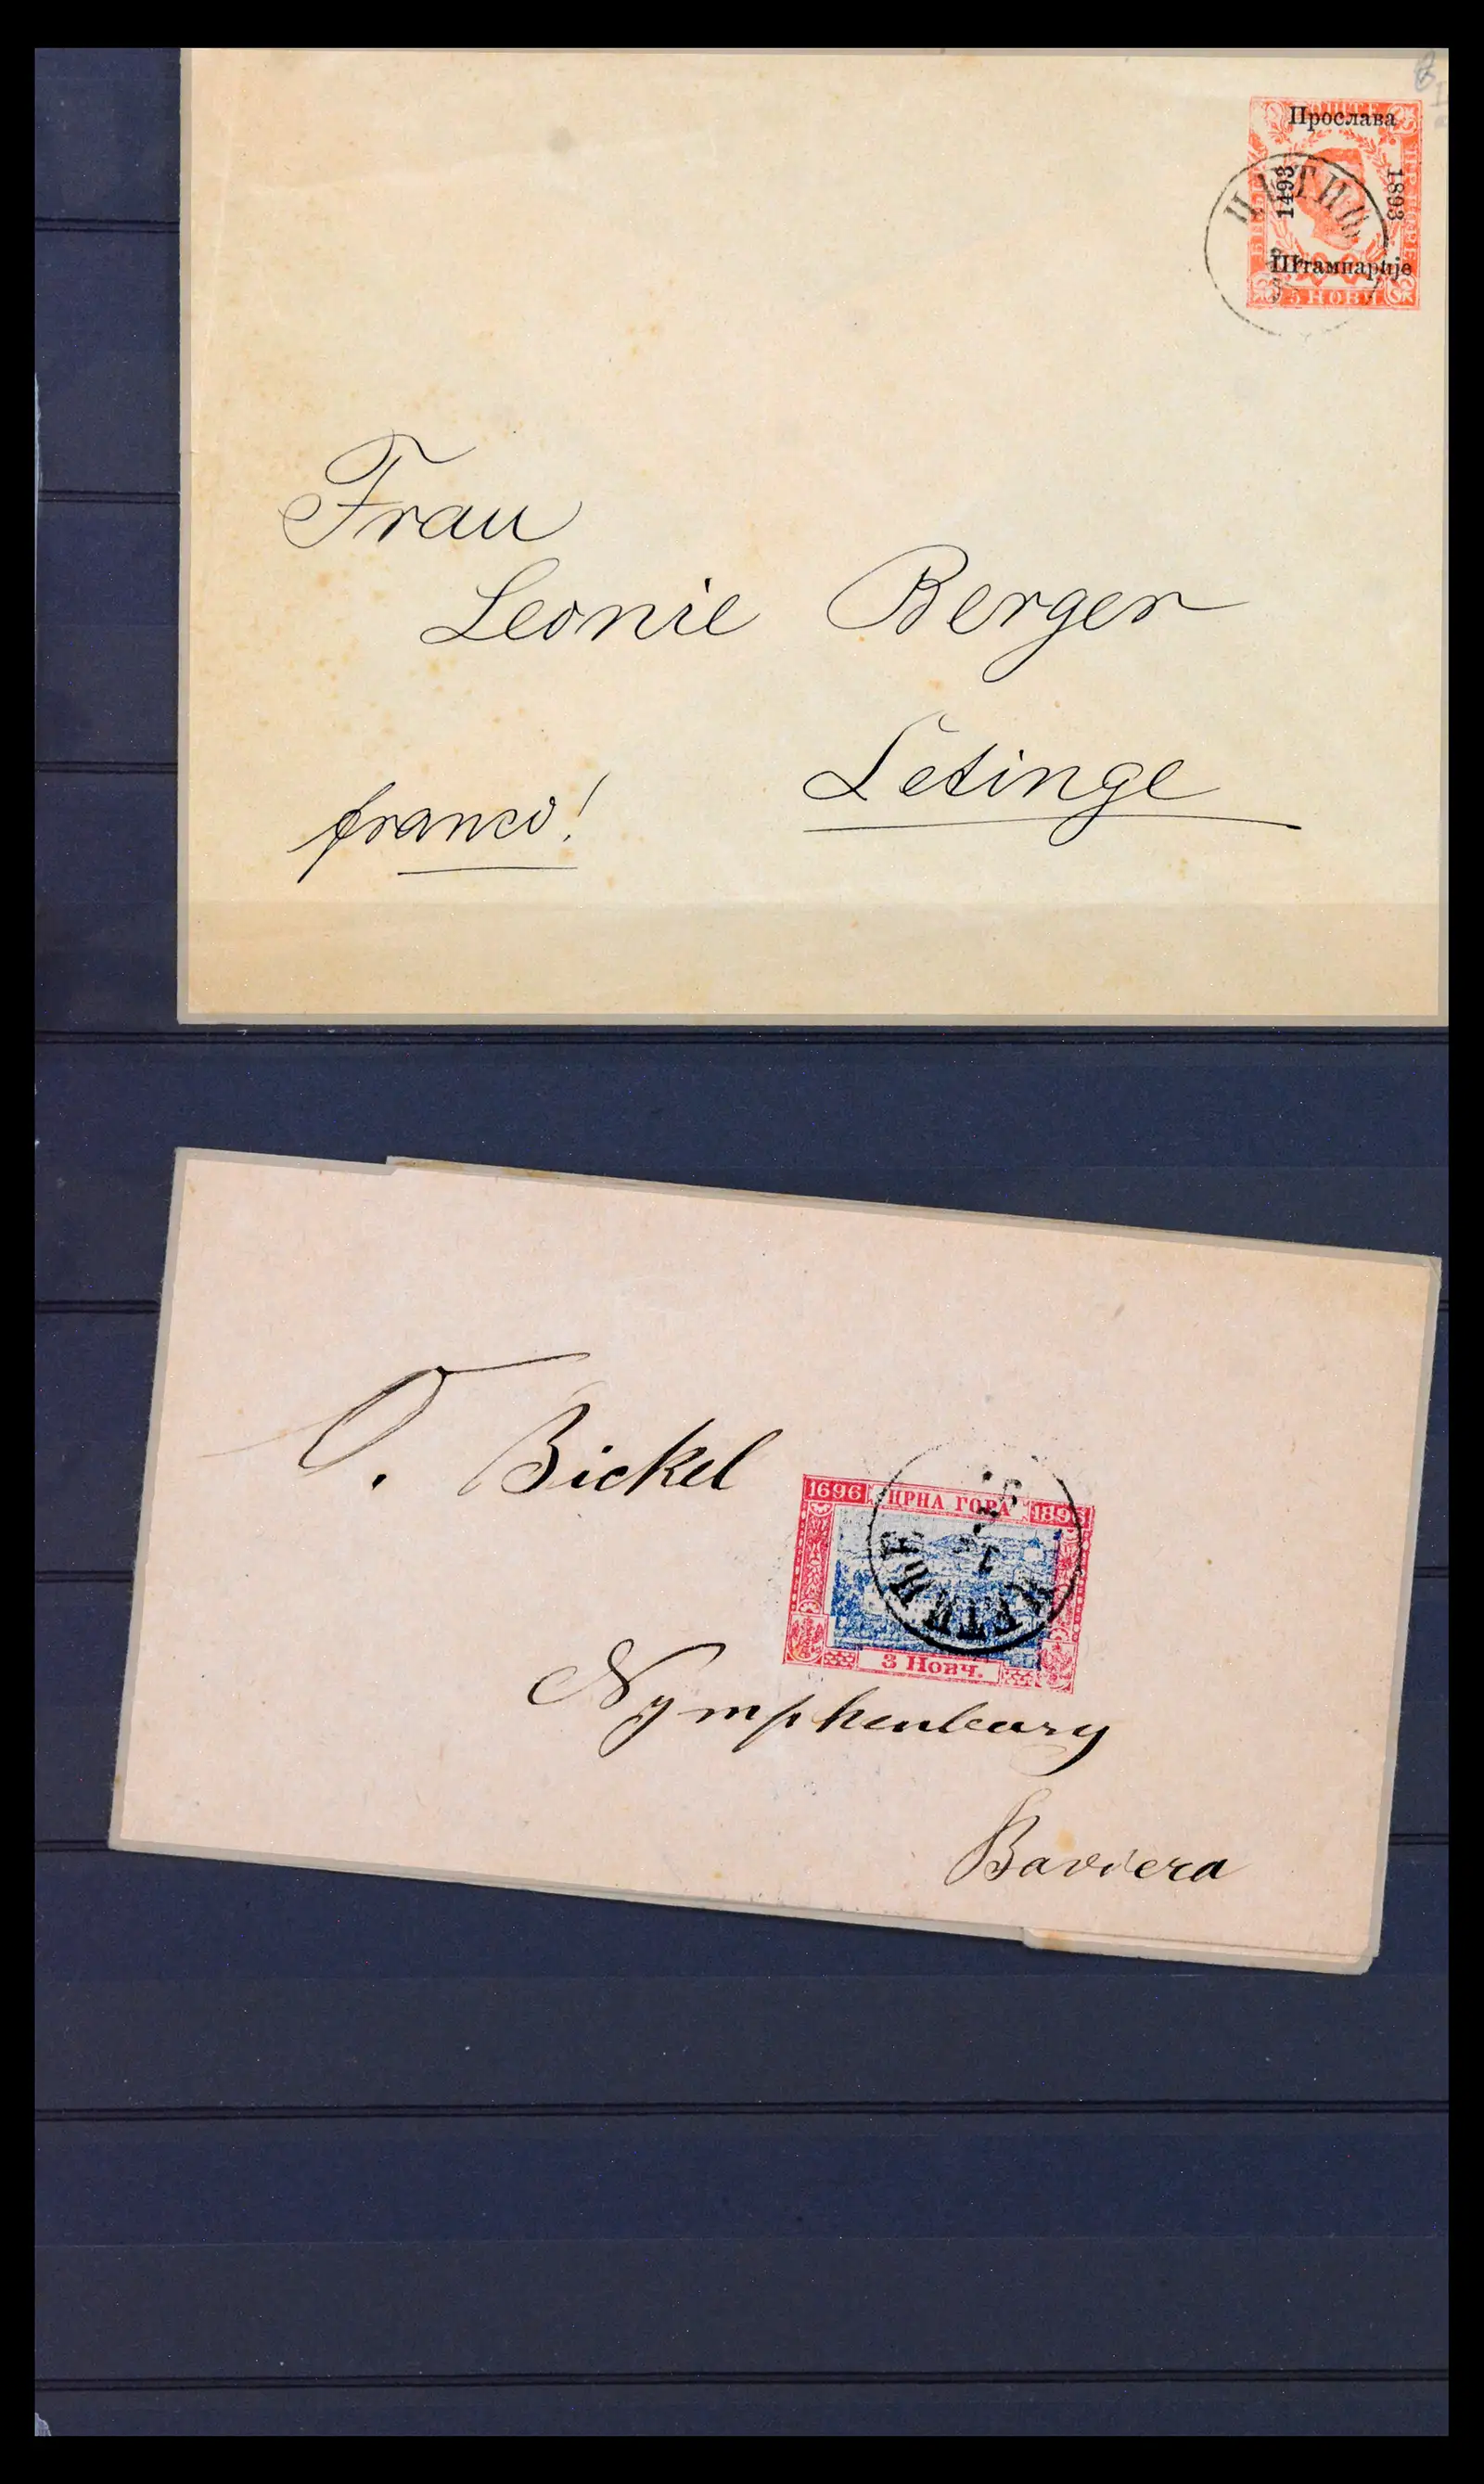 Прослава
1493
1893
ЦЕТИЊЕ
Штампарије
5 НОВЧ
Frau
Leonie Berger
Cetinge
franco!
O. Bickel
1696 ЦРНА ГОРА 1896
ЦЕТИЊЕ
3 Новч.
Nymphenburg
Baviera